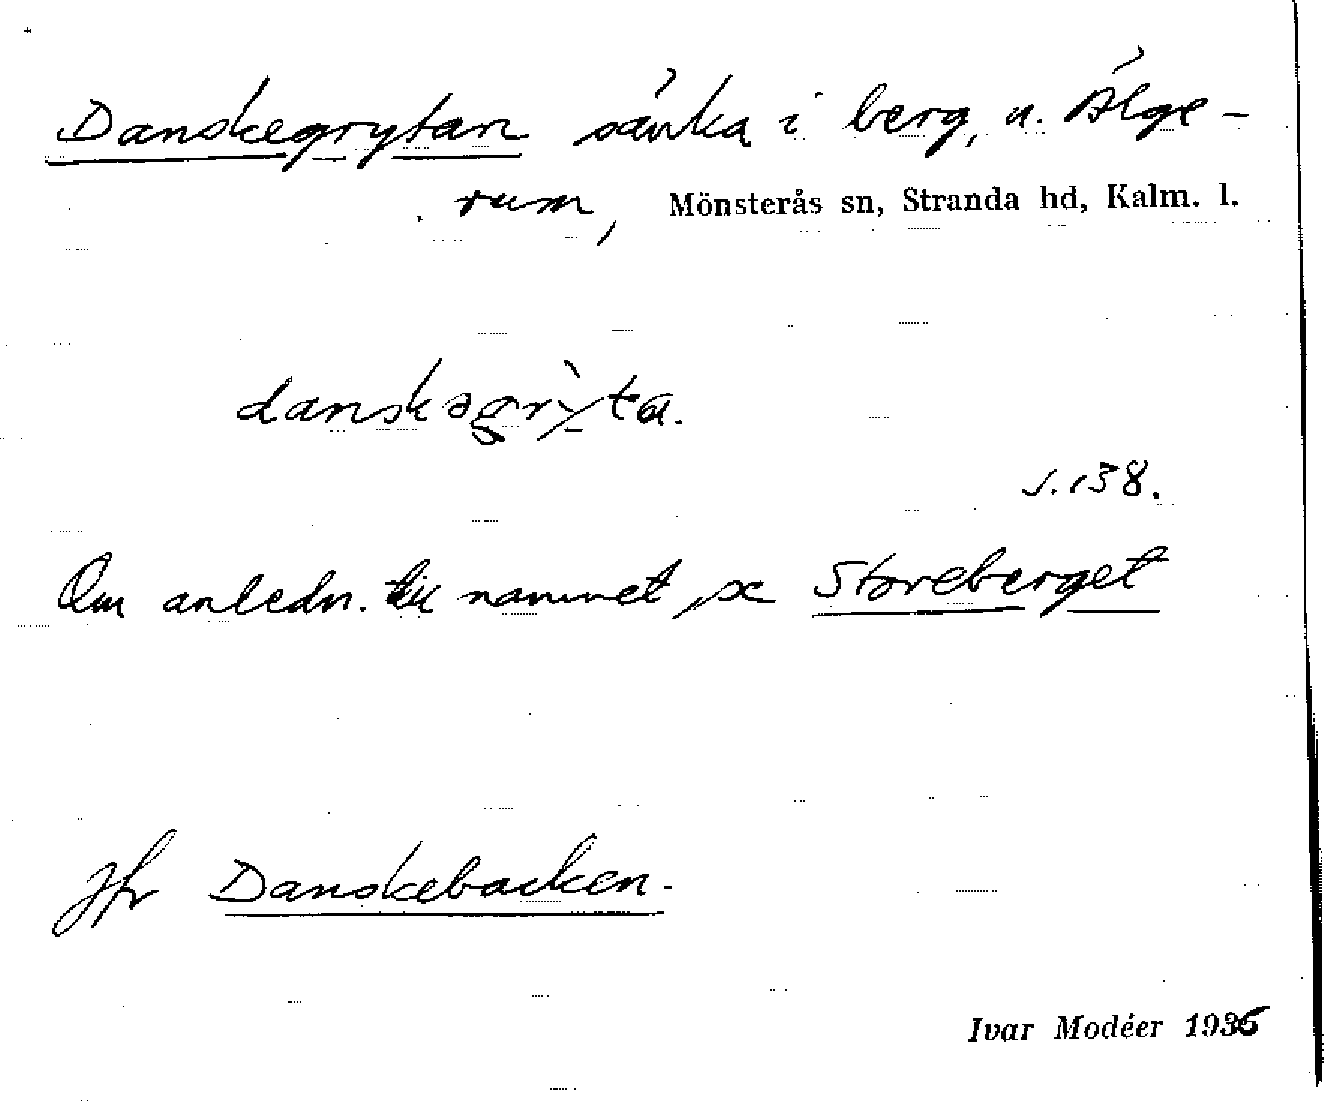 Danskegrytan sänka i berg, u. Älge-
rum, Mönsterås sn, Stranda hd, Kalm. l.
danskəgrỳta.
s. 138.
Om anledn. till namnet, se Storeberget
Jfr Danskebacken.
Ivar Modéer 1936